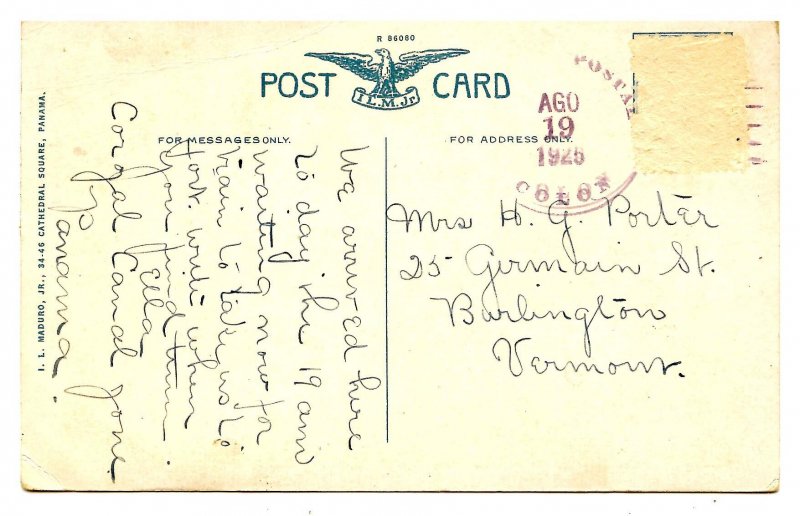 R 86080
POST CARD
I.L.M.Jr.
FOR MESSAGES ONLY.
FOR ADDRESS ONLY.
POSTAL
AGO
19
1925
COLON
I. L. MADURO, JR., 34-46 CATHEDRAL SQUARE, PANAMA.
We arrived here
to day, the 19 and
waiting now for
train to take us to
fort. write when
you find time
Ella
Corozal Canal Zone
Panama.
Mrs H. G. Porter
25 Germain St.
Burlington
Vermont.